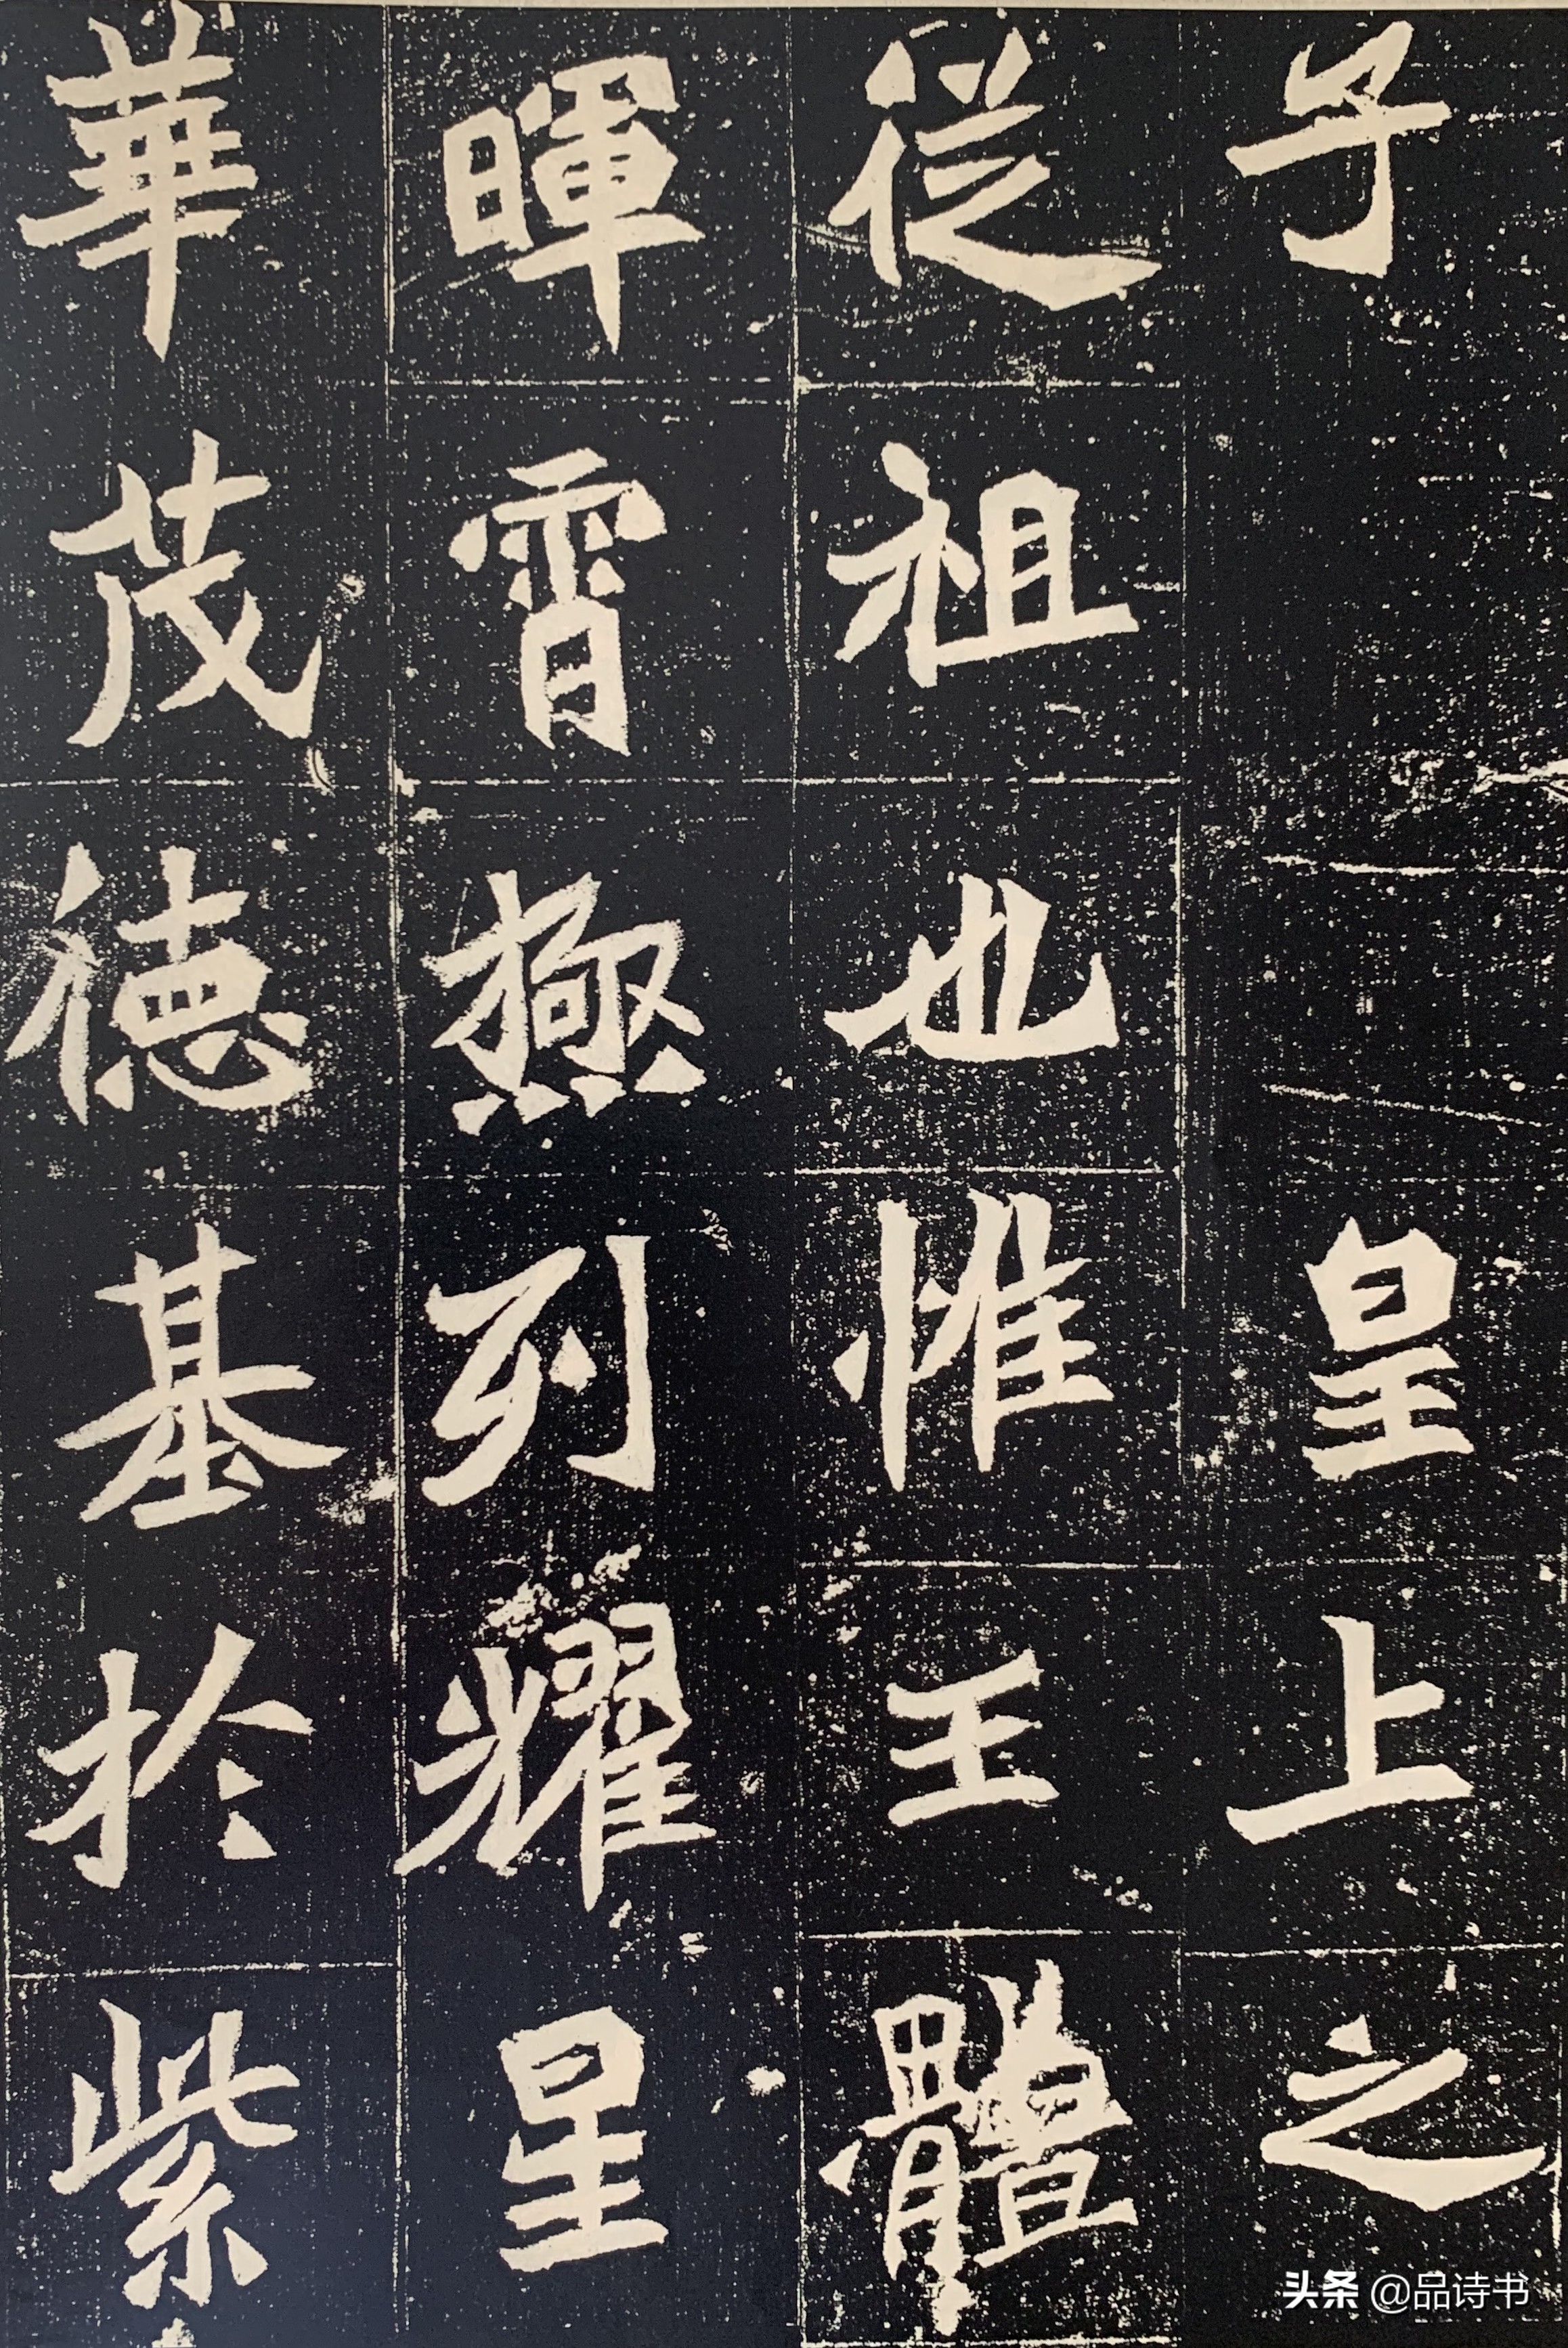 子皇上之
從祖也惟王體
暉霄極列耀星
華茂德基於紫
头条 @品诗书